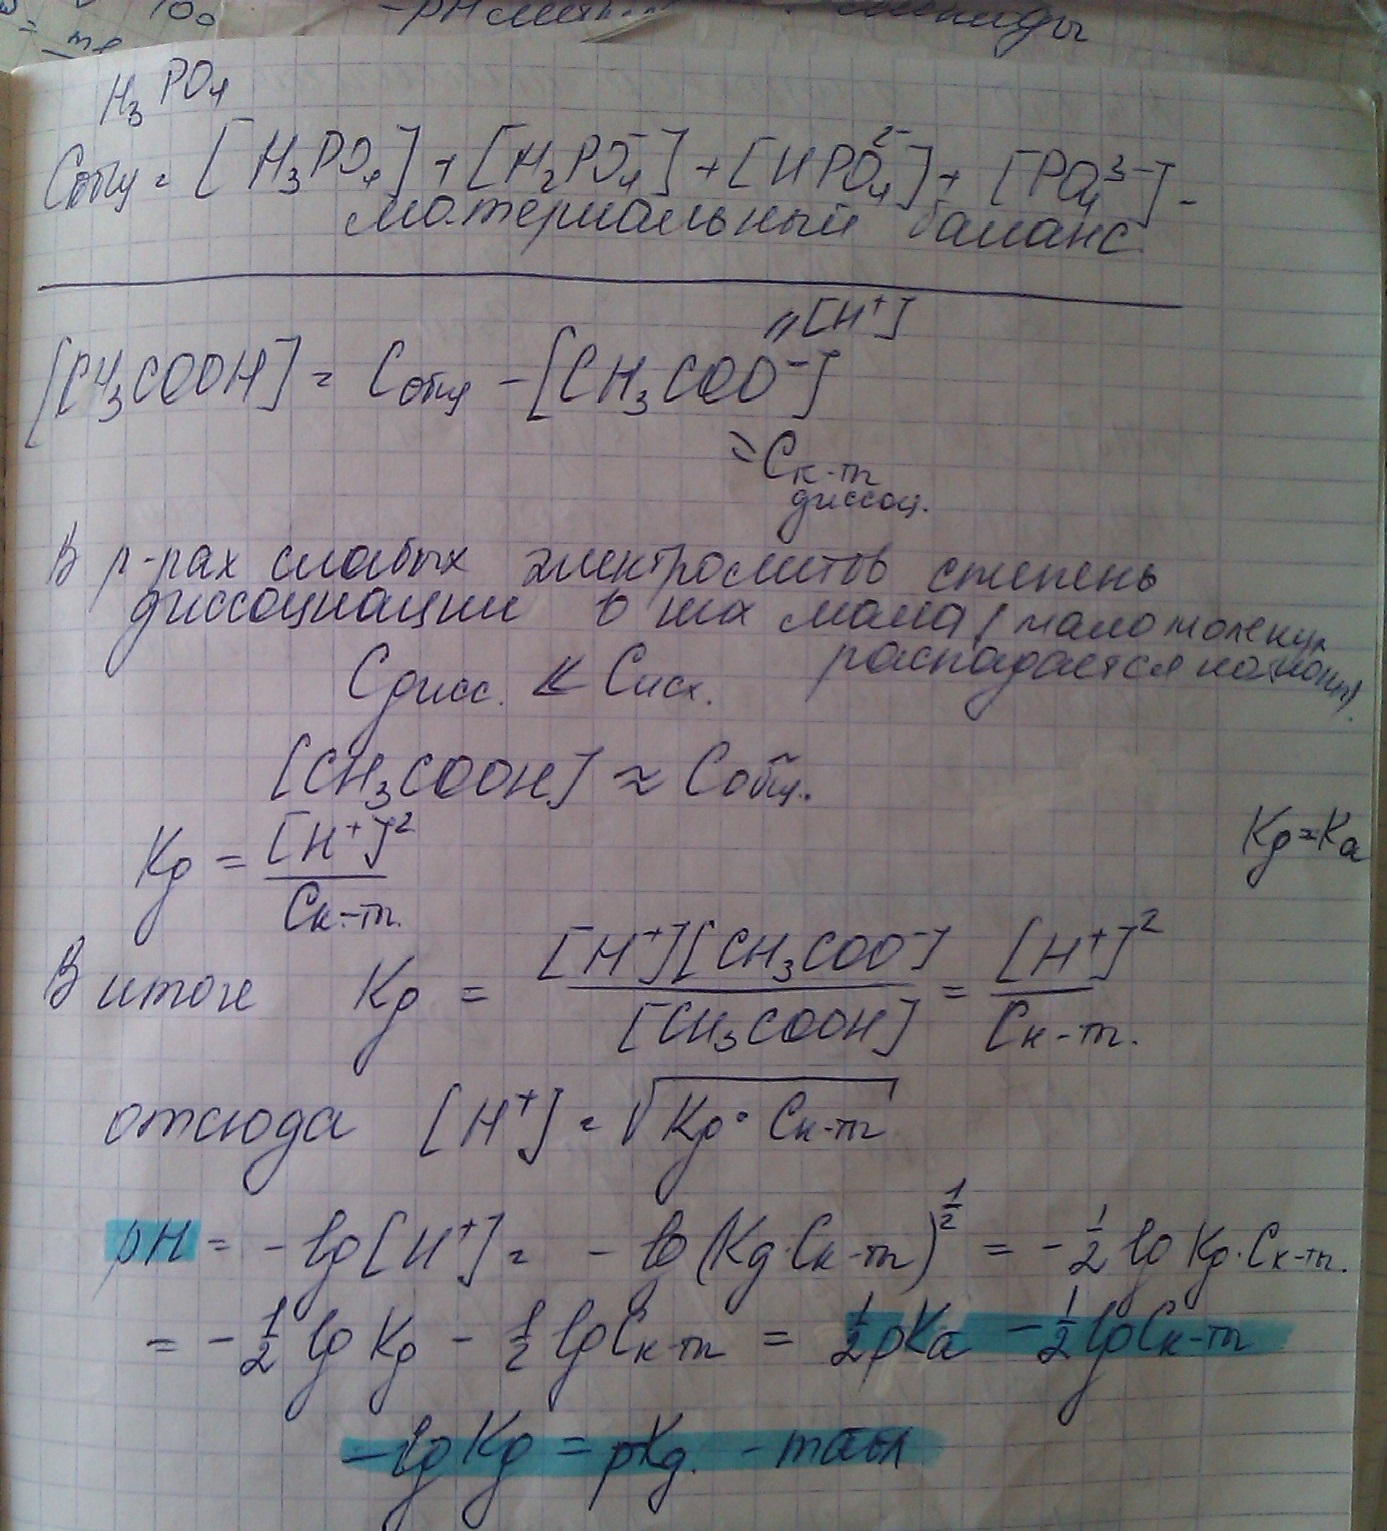 100
H₃PO₄
Cобщ = [H₃PO₄] + [H₂PO₄⁻] + [HPO₄²⁻] + [PO₄³⁻] -
материальный баланс
= [H⁺]
[CH₃COOH] = Cобщ - [CH₃COO⁻]
= Cк-т
диссоц.
В р-рах слабых электролитов степень
диссоциации в них мала (мало молекул
распадается на ионы)
Cдисс. ≪ Cисх.
[CH₃COOH] ≈ Cобщ.
Kд = [H⁺]² / Cк-т.
Kд = Ka
В итоге Kд = [H⁺][CH₃COO⁻] / [CH₃COOH] = [H⁺]² / Cк-т.
отсюда [H⁺] = √(Kд · Cк-т)
pH = -lg[H⁺] = -lg(Kд·Cк-т)^½ = -½ lg Kд·Cк-т.
= -½ lg Kд - ½ lg Cк-т = ½ pKa - ½ lg Cк-т
-lg Kд = pKд. - табл